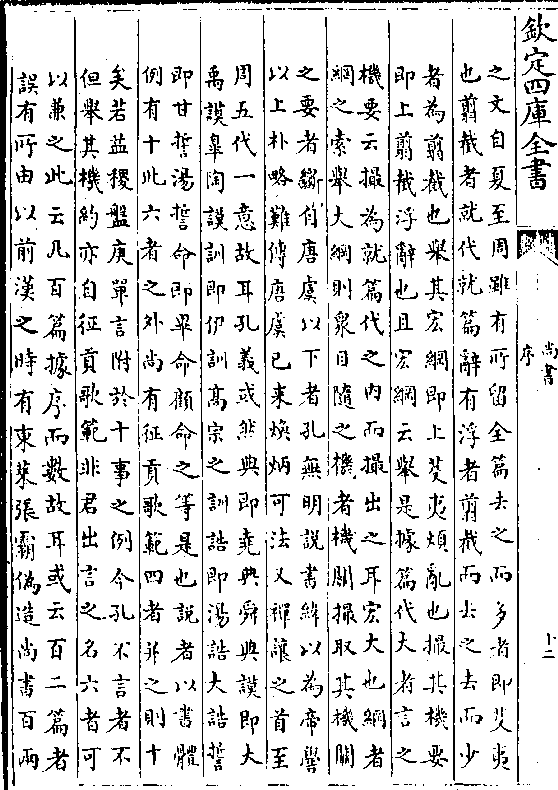 欽定四庫全書
尚書
序
十二
之文自夏至周雖有所留全篇去之而多者即芟夷
也翦截者就代就篇辭有浮者翦截而去之去而少
者為翦截也舉其宏綱即上芟夷煩亂也撮其機要
即上翦截浮辭也且宏綱云舉是據篇代大者言之
機要云撮為就篇代之内而撮出之耳宏大也綱者
網之索舉大綱則衆目隨之機者機關撮取其機關
之要者斷自唐虞以下者孔無明説書緯以為帝嚳
以上朴略難傳唐虞已來煥炳可法又禪讓之首至
周五代一意故耳孔義或然典即堯典舜典謨即大
禹謨皋陶謨訓即伊訓高宗之訓誥即湯誥大誥誓
即甘誓湯誓命即畢命顧命之等是也説者以書體
例有十此六者之外尚有征貢歌範四者并之則十
矣若益稷盤庚單言附於十事之例今孔不言者不
但舉其機約亦自征貢歌範非君出言之名六者可
以兼之此云凡百篇據序而數故耳或云百二篇者
誤有所由以前漢之時有東萊張霸偽造尚書百兩